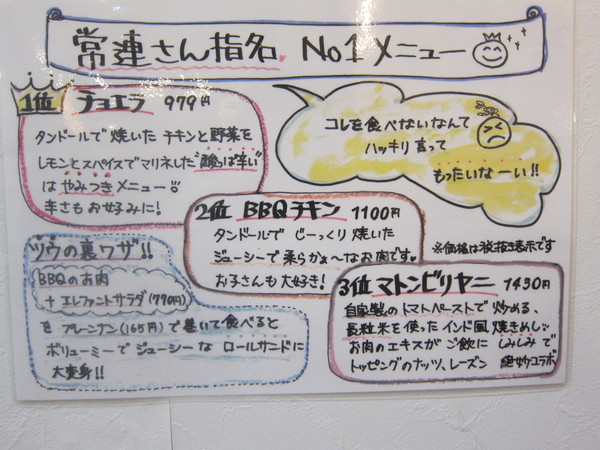 常連さん指名 No1メニュー
1位 チョエラ 979円
タンドールで焼いたチキンと野菜を
レモンとスパイスでマリネした"酸っぱ辛い"
はやみつきメニュー!!
辛さもお好みに!
コレを食べないなんて
ハッキリ言って
もったいなーい!!
2位 BBQチキン 1100円
タンドールでじーっくり焼いた
ジューシーで柔らかぁ〜なお肉です♥
お子さんも大好き!
※価格は税抜き表示です
ツウの裏ワザ!!
BBQのお肉
+エレファントサラダ(770円)
を プレーンナン(165円)で巻いて食べると
ボリューミーでジューシーな ロールサンドに
大変身!!
3位 マトンビリヤニ 1430円
自家製のトマトペーストで炒める、
長粒米を使ったインド風焼きめし
お肉のエキスがご飯にしみしみで
トッピングのナッツ、レーズン 絶妙コラボ